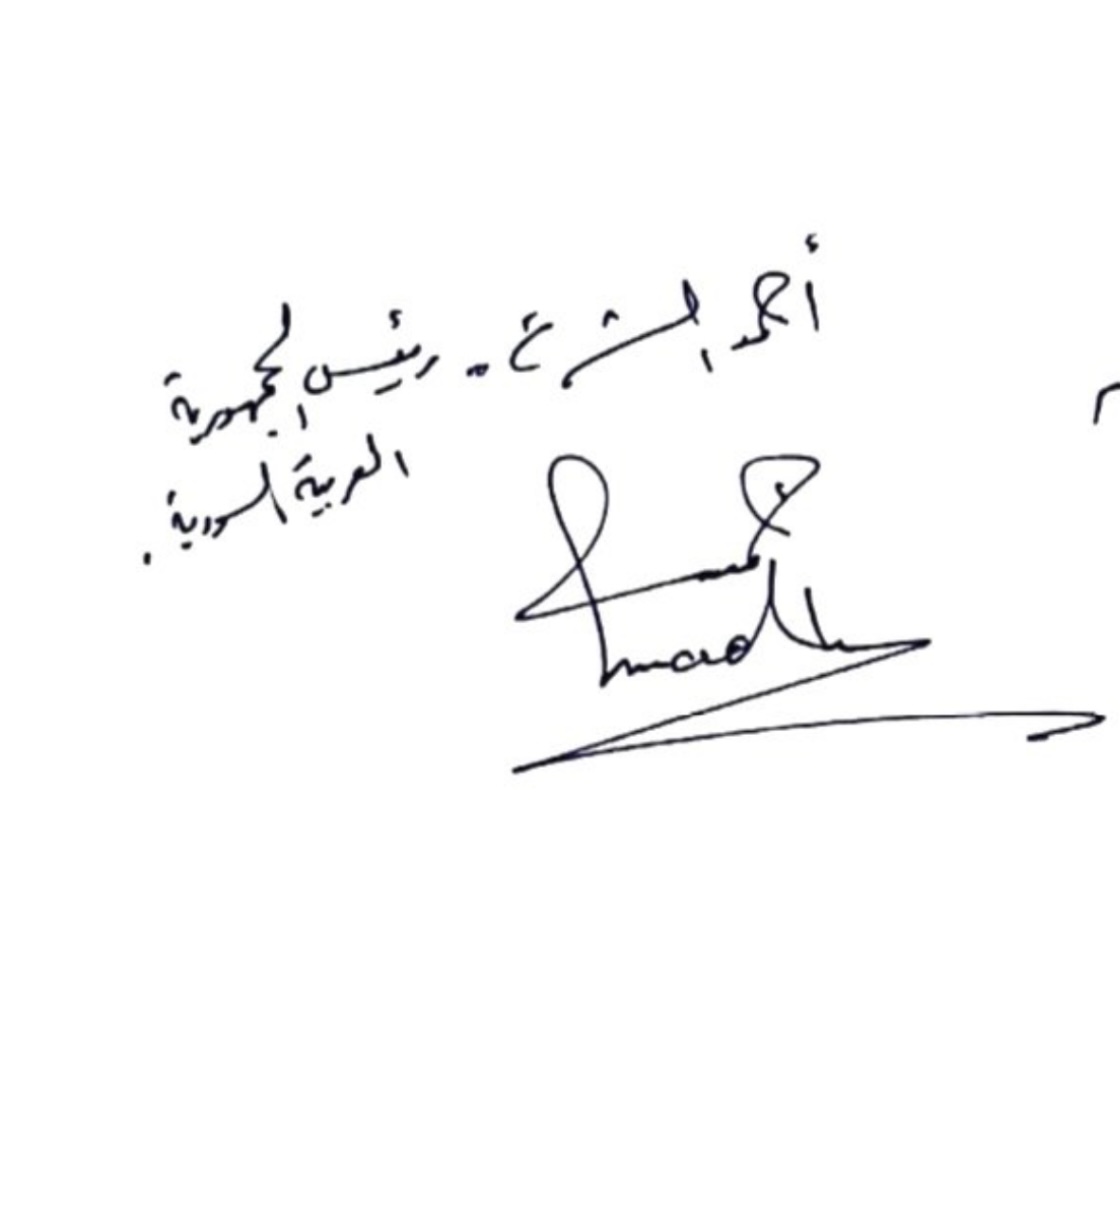 أحمد الشرع .. رئيس الجمهورية
العربية السورية .